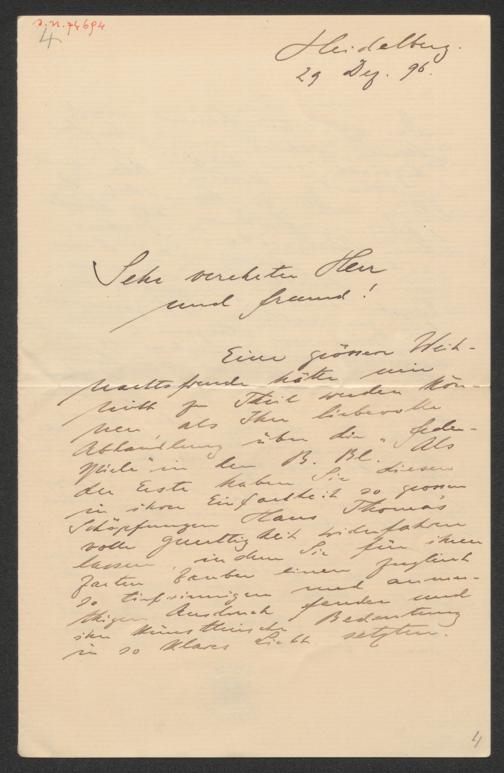 J.N. 74694
4
Heidelberg.
29 Dez. 96.
Sehr verehrter Herr
und Freund!
Eine grössere Weih-
nachtsfreude hätte mir
nicht zu Theil werden kön-
nen als Ihre liebevolle
Abhandlung über die „Feder-
spiele" in den B. Bl. Als
der Erste haben Sie diesen
in ihrer Einfachheit so grossen
Schöpfungen Hans Thomas
volle Gerechtigkeit widerfahren
lassen, indem Sie für ihren
zarten Zauber einen zugleich
so tiefsinnigen und anmu-
thigen Ausdruck fanden und
ihre künstlerische Bedeutung
in so klares Licht setzten.
4